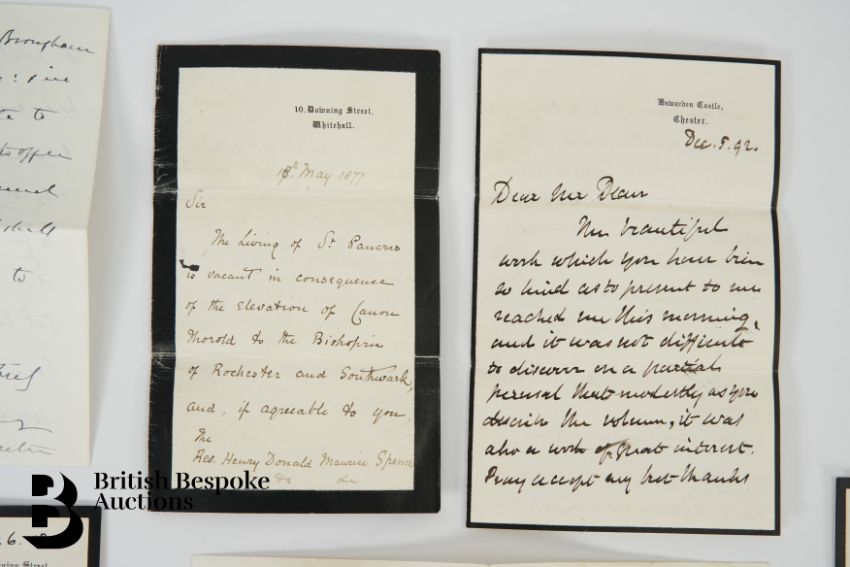 Brougham
to
to
10. Downing Street.
Whitehall.
18th May 1877
Sir
The Living of St Pancras
is vacant in consequence
of the elevation of Canon
Thorold to the Bishopric
of Rochester and Southwark,
and, if agreable to you,
The
Rev. Henry Donald Maurice Spence
&c &c
Hawarden Castle,
Chester.
Dec. 5. 92.
Dear Mr Dean
The beautiful
work which you have been
so kind as to present to me
reached me this morning,
and it was not difficult
to discover on a partial
perusal that modestly as you
describe the volume, it was
also a work of great interest.
Pray accept my best thanks
British Bespoke
Auctions